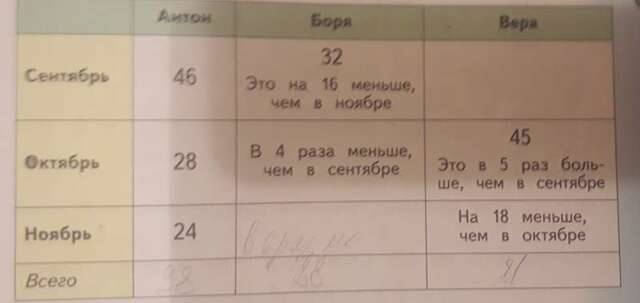 Антон Боря Вера
Сентябрь 46 32
Это на 16 меньше,
чем в ноябре
Октябрь 28 В 4 раза меньше,
чем в сентябре
45
Это в 5 раз боль-
ше, чем в сентябре
Ноябрь 24 На 18 меньше,
чем в октябре
Всего 98 88 81